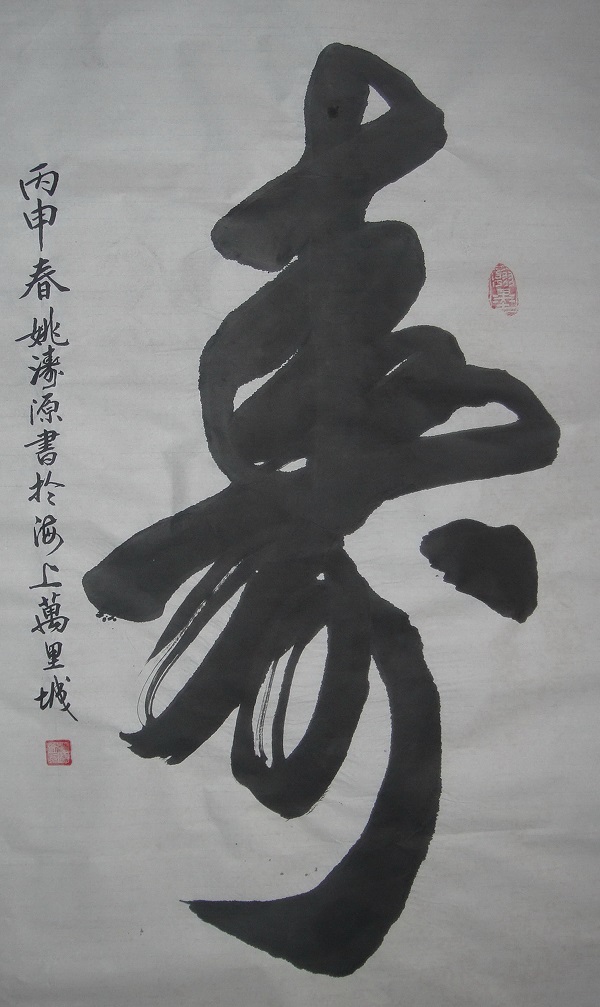 壽
丙申春姚濤源書於海上萬里城